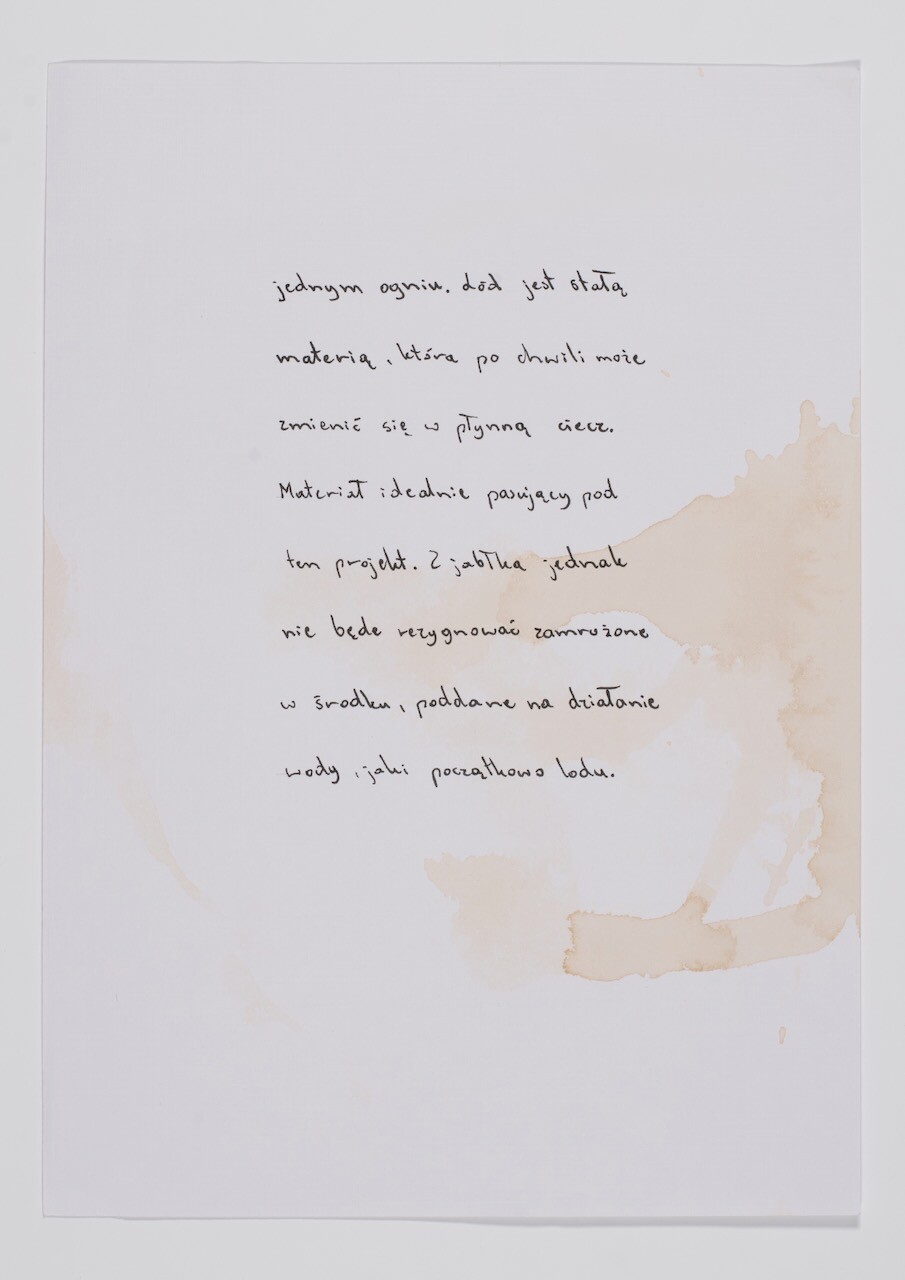 jednym ogniu. Lód jest stałą
materią, która po chwili może
zmienić się w płynną ciecz.
Materiał idealnie pasujący pod
ten projekt. Z jabłka jednak
nie będe rezygnować zamrożone
w środku, poddane na działanie
wody, jaki początkowo lodu.